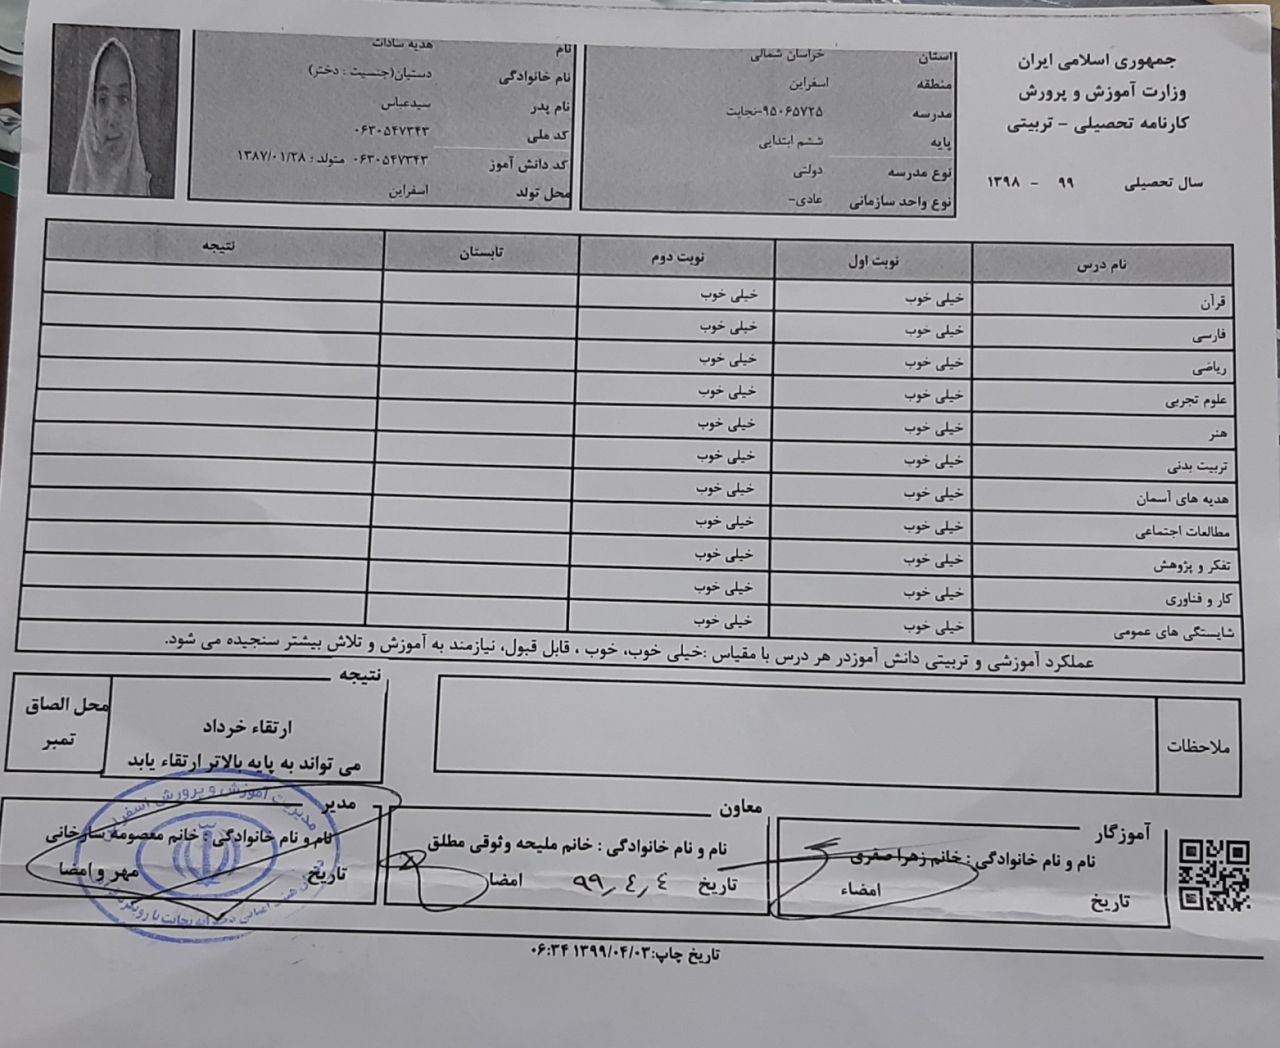 جمهوری اسلامی ایران
وزارت آموزش و پرورش
کارنامه تحصیلی - تربیتی
سال تحصیلی ۹۹ - ۱۳۹۸
استان خراسان شمالی
منطقه اسفراین
مدرسه ۹۵۰۶۵۷۲۵-نجابت
پایه ششم ابتدایی
نوع مدرسه دولتی
نوع واحد سازمانی عادی-
نام هدیه سادات
نام خانوادگی دستیان(جنسیت : دختر)
نام پدر سیدعباس
کد ملی ۰۶۳۰۵۴۷۳۴۳
کد دانش آموز ۰۶۳۰۵۴۷۳۴۳ متولد : ۱۳۸۷/۰۱/۲۸
محل تولد اسفراین
نام درس نوبت اول نوبت دوم تابستان نتیجه
قرآن خیلی خوب خیلی خوب
فارسی خیلی خوب خیلی خوب
ریاضی خیلی خوب خیلی خوب
علوم تجربی خیلی خوب خیلی خوب
هنر خیلی خوب خیلی خوب
تربیت بدنی خیلی خوب خیلی خوب
هدیه های آسمان خیلی خوب خیلی خوب
مطالعات اجتماعی خیلی خوب خیلی خوب
تفکر و پژوهش خیلی خوب خیلی خوب
کار و فناوری خیلی خوب خیلی خوب
شایستگی های عمومی خیلی خوب خیلی خوب
عملکرد آموزشی و تربیتی دانش آموزدر هر درس با مقیاس :خیلی خوب، خوب ، قابل قبول، نیازمند به آموزش و تلاش بیشتر سنجیده می شود.
ملاحظات
نتیجه
ارتقاء خرداد
می تواند به پایه بالاتر ارتقاء یابد
محل الصاق
تمبر
آموزگار
نام و نام خانوادگی : خانم زهرا صفری
تاریخ امضاء
معاون
نام و نام خانوادگی : خانم ملیحه وثوقی مطلق
تاریخ ۹۹,۴,۴ امضا
مدیر
نام و نام خانوادگی : خانم معصومه سارخانی
تاریخ مهر و امضا
مدیریت آموزش و پرورش اسفراین
تاریخ چاپ:۱۳۹۹/۰۴/۰۳ ۰۶:۳۴